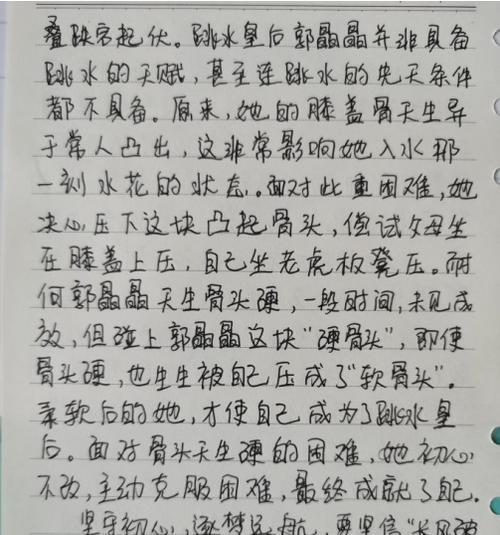 叠跌宕起伏。跳水皇后郭晶晶并非具备
跳水的天赋，甚至连跳水的先天条件
都不具备。原来，她的膝盖骨天生异
于常人凸出，这非常影响她入水那
一刻水花的状态。面对此重困难，她
决心压下这块凸起骨头，偿试父母坐
在膝盖上压，自己坐老虎板凳压。耐
何郭晶晶天生骨头硬，一段时间，未见成
放，但碰上郭晶晶这块"硬骨头"，即使
骨头硬，也生生被自己压成了"软骨头"。
柔软后的她，才使自己成为了跳水皇
后。面对骨头天生硬的困难，她初心
不改，主动克服困难，最终成就了自己。
坚守初心，逐梦远航，要坚信"长风破